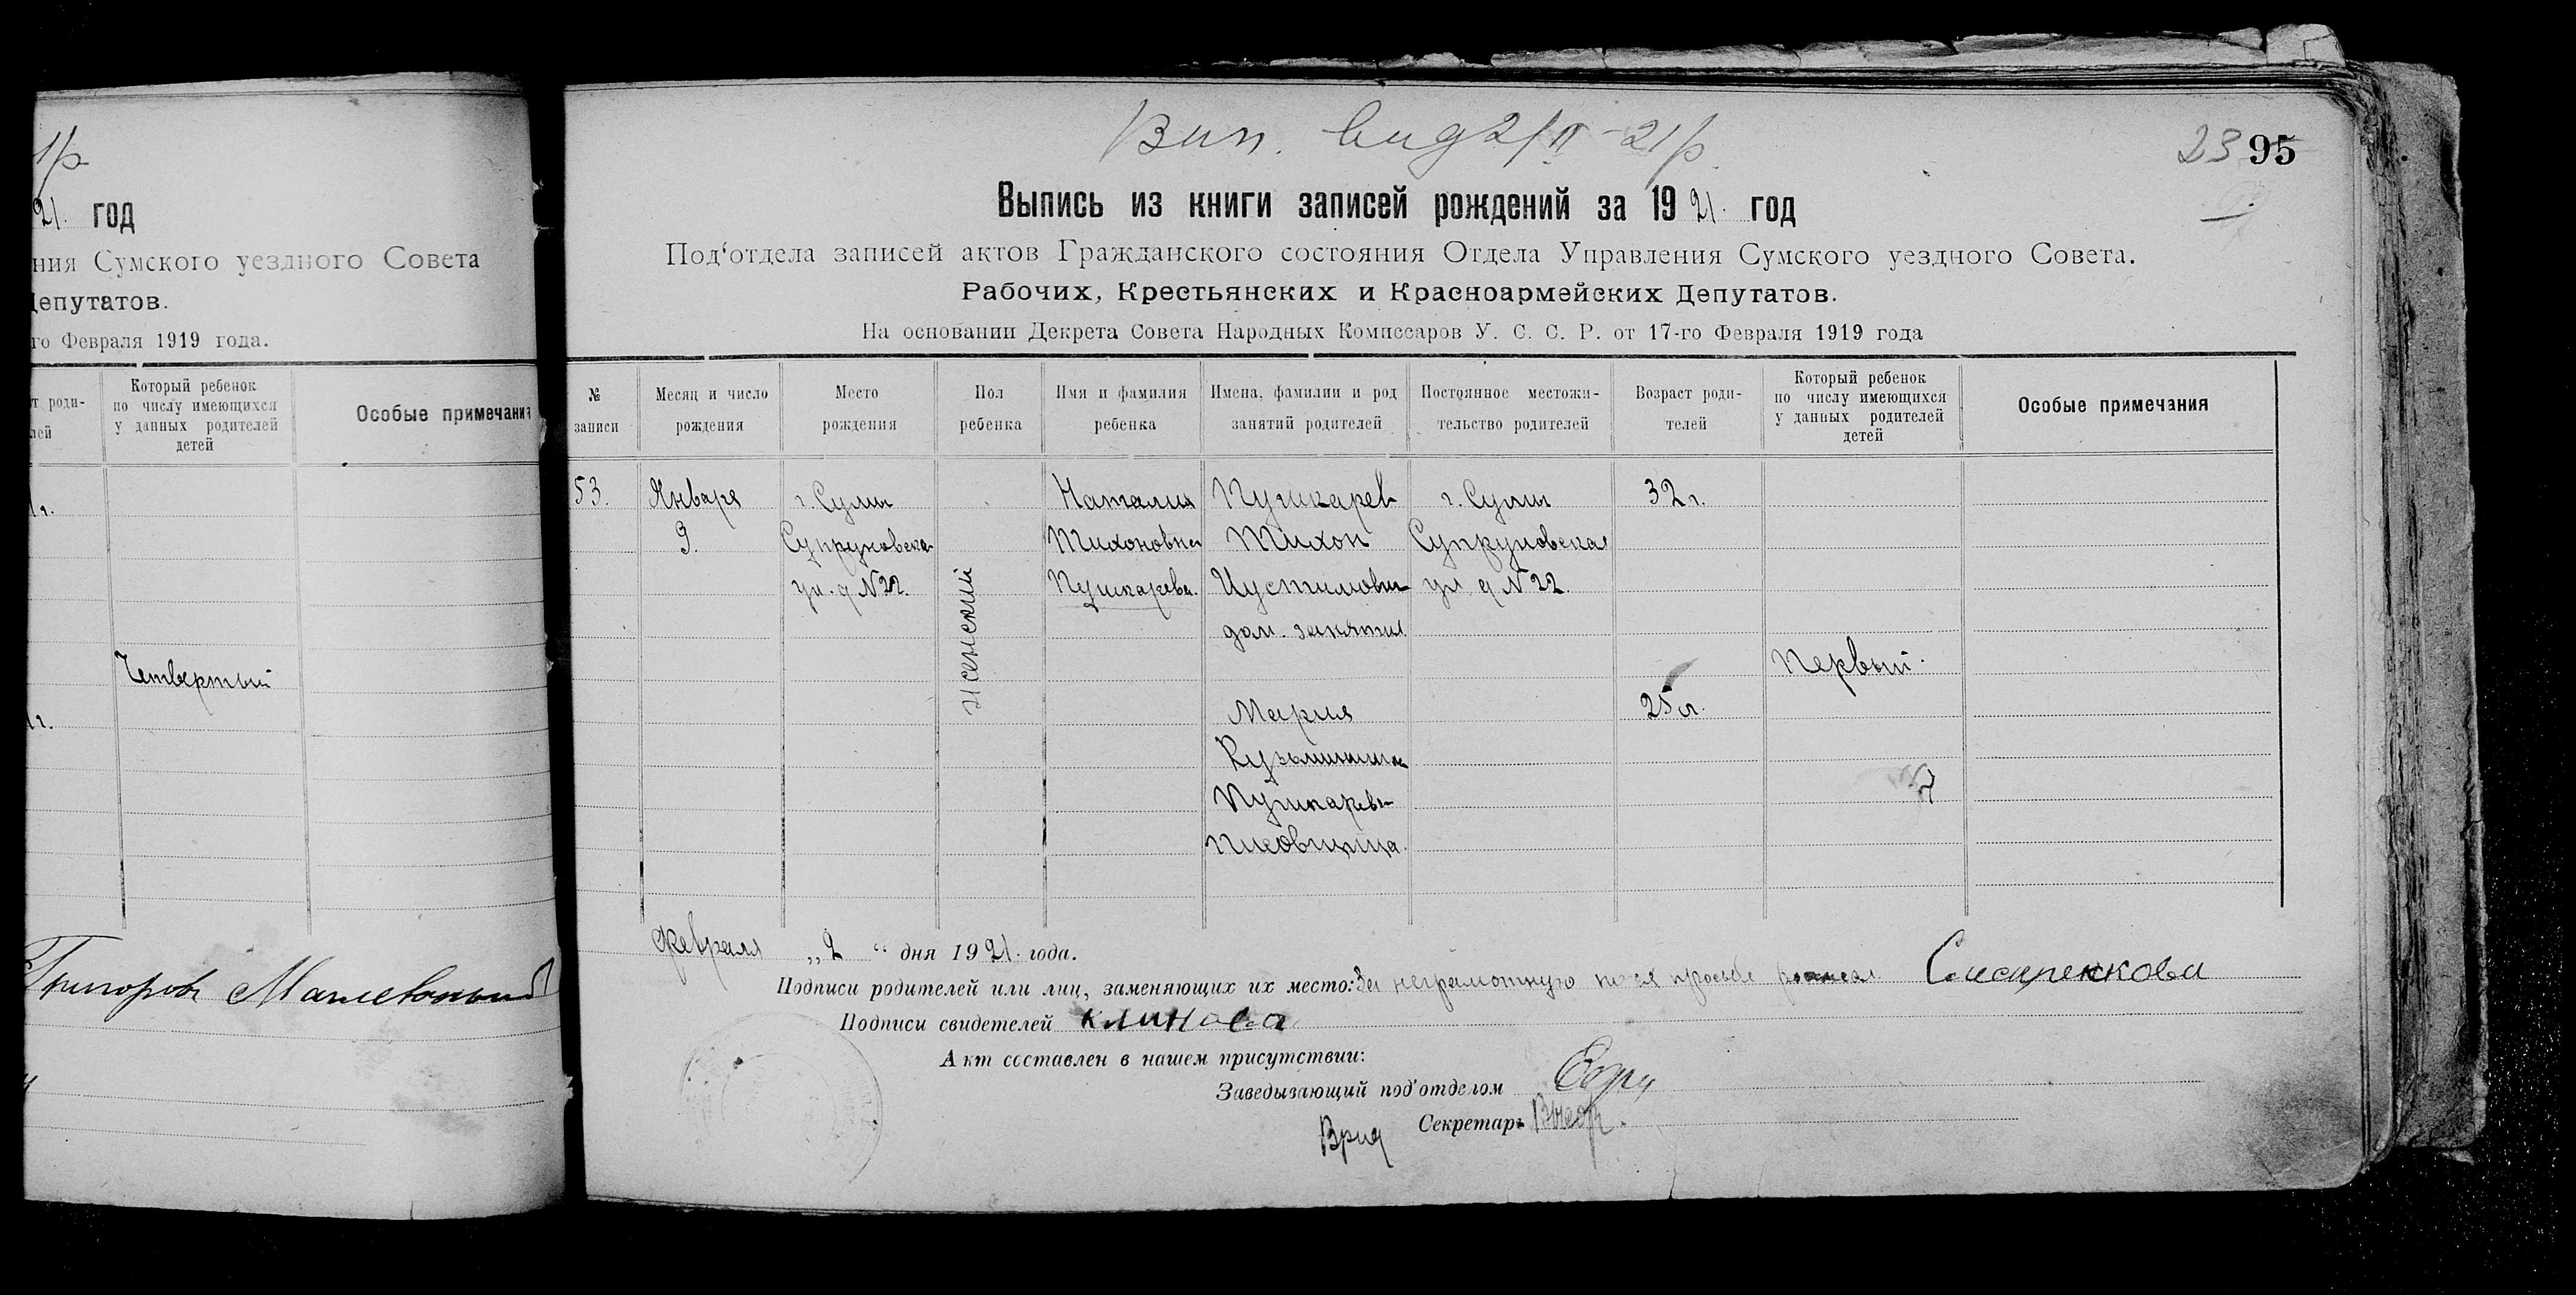 1/р
21. год
ния Сумского уездного Совета
Депутатов.
го Февраля 1919 года.
т роди-
лей
Который ребенок
по числу имеющихся
у данных родителей
детей
Особые примечания
1 г.
Четвертый
1 г.
Вип. вид 2/II-21 р.
23 95
Выпись из книги записей рождений за 1921. год
Под‘отдела записей актов Гражданского состояния Отдела Управления Сумского уездного Совета.
Рабочих, Крестьянских и Красноармейских Депутатов.
На основании Декрета Совета Народных Комиссаров У. С. С. Р. от 17-го Февраля 1919 года
№
записи
Месяц и число
рождения
Место
рождения
Пол
ребенка
Имя и фамилия
ребенка
Имена, фамилии и род
занятий родителей
Постоянное местожи-
тельство родителей
Возраст роди-
телей
Который ребенок
по числу имеющихся
у данных родителей
детей
Особые примечания
53.
Января
9.
г. Сумы
Супруновская
ул. д N 22.
женский
Наталия
Тихоновна
Пушкарева.
Пушкарев
Тихон
Иустинович
дом. занятия
Мария
Кузьминична
Пушкарева
Писовщица.
г. Сумы
Супруновская
ул д N 22.
32 г.
25 л.
Первый.
Февраля „2“ дня 1921. года.
Подписи родителей или лиц, заменяющих их место: За неграмотную по ея просьбе
Подписи свидетелей Клинова
Акт составлен в нашем присутствии:
Заведывающий под‘отделом
Секретарь
Врид